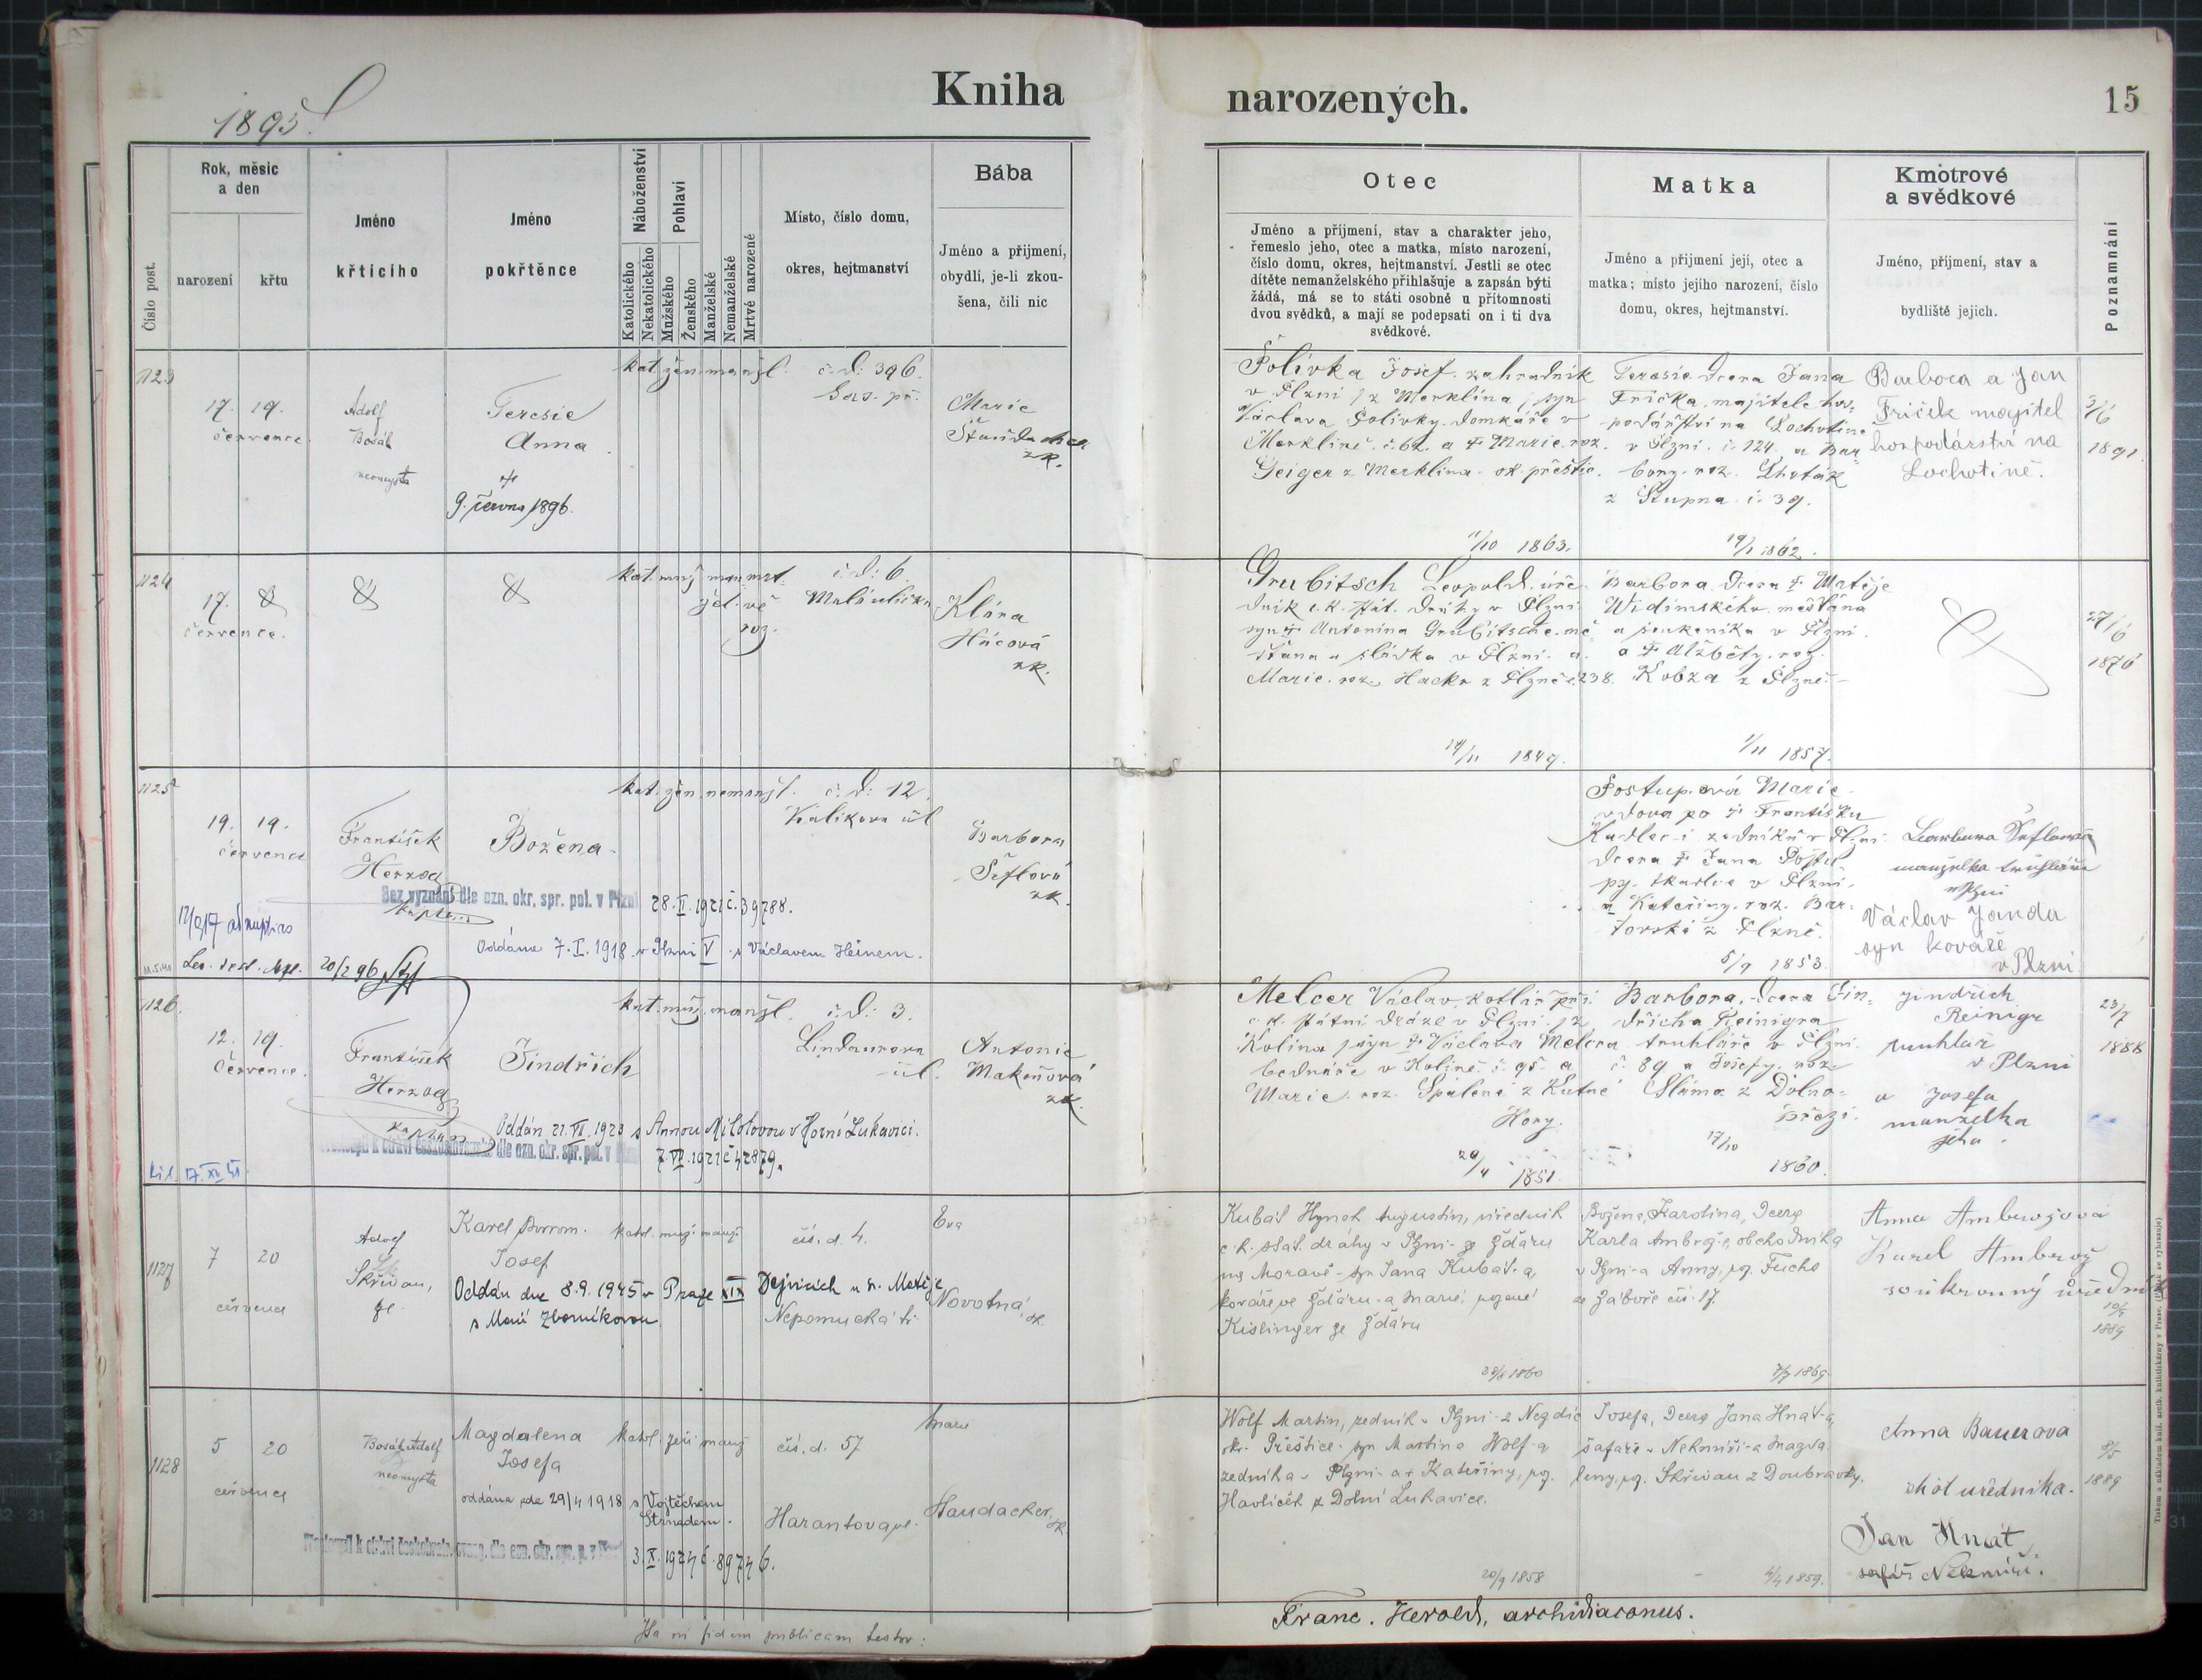 Kniha
narozených.
15
1895
Číslo post.
Rok, měsíc
a den
narození
křtu
Jméno
křtícího
Jméno
pokřtěnce
Náboženství
Katolického
Nekatolického
Pohlaví
Mužského
Ženského
Manželské
Nemanželské
Mrtvé narozené
Místo, číslo domu,
okres, hejtmanství
Bába
Jméno a přijmení,
obydlí, je-li zkou-
šena, čili nic
Otec
Jméno a příjmení, stav a charakter jeho,
řemeslo jeho, otec a matka, místo narození,
číslo domu, okres, hejtmanství. Jestli se otec
dítěte nemanželského přihlašuje a zapsán býti
žádá, má se to státi osobně u přítomnosti
dvou svědků, a mají se podepsati on i ti dva
svědkové.
Matka
Jméno a přijmení její, otec a
matka; místo jejího narození, číslo
domu, okres, hejtmanství.
Kmotrové
a svědkové
Jméno, příjmení, stav a
bydliště jejich.
Poznamnání
1123
17. 19.
července
Adolf
Bosák
neomysta
Teresie
Anna
9. června 1896.
kat. žen. manžl.
č. d: 396.
Sas. př.
Marie
zk.
Polívka Josef. zahradník
v Plzni /z Merklína/ syn
Václava Polívky. domkáře v
Merklíně. č. 62. a † Marie. roz.
Geiger z Merklína. ok. přeštic.
11/10 1863.
Terezie dcera Jana
Frička. majitele hos-
podářství na Lochotíně
v Plzni. č. 124. a Bar-
bory. roz. Lhoták
z Stupna č. 39.
19/1 1862.
Barbora a Jan
Friček majitel
hospodářství na
Lochotíně.
3/6
1891
1124
17.
července.
kat. muž. man- mrt-
žel. vě
roz.
č. d: 6.
Malá ulička
Klára
Húcová
zk.
Grubitsch Leopold. úře-
dník c. k. stát. dráhy v Plzni
syn † Antonína Grubitsche. mě-
šťana a sládka v Plzni. a.
Marie. roz. Hacker z Plzně č. 238.
14/11 1849.
Barbora dcera † Matěje
Widimského. měšťana
a soukeníka v Plzni.
a † Alžběty. roz.
Kobza z Plzně.
1/11 1857.
27/6
1876
1125
19. 19.
července
František
Herzog
kaplan
Božena
kat. žen. nemanžl. č. d: 12.
Kalikova ul
Barbora
Šeflová
zk.
Bez vyznání dle ozn. okr. spr. pol. v Plzni 28. II. 1921 č. 39788.
12/9 17 ad nuptias
Oddána 7. I. 1918 v Plzni V. s Václavem Heinem.
20/2 96
Postupová Marie
vdova po † Františku
Kadlec-i zedníku v Plzni
dcera † Jana Postu-
py. tkadlce v Plzni
a Kateřiny. roz. Bar-
torské z Plzně.
5/9 1853.
Barbora Šeflová
manželka truhláře
v Plzni
Václav Janda
syn kováře
v Plzni
1126.
12. 19.
července.
František
Herzog
kaplan
Jindřich
kat. muž. manžl. č. d: 3.
Lindaurova
úl.
Antonie
Makoňová
zk.
Oddán 21. VI. 1923 s Annou Milotovou v Horní Lukavici.
dle ozn. okr. spr. pol. v
7. VI. 1921 č. 42879.
Melcer Václav kotlář při
c. k. státní dráze v Plzni /z
Kolína/ syn † Václava Melcra
bednáře v Kolíně. č. 95. a
Marie. roz. Spálené z Kutné
Hory.
29/4 1851.
Barbora, dcera Jin-
dřicha Reinigra
truhláře v Plzni
č. 89 a Josefy. roz.
Sláma z Dolno-
březí.
17/10
1860.
Jindřich
Reinigr
truhlář
v Plzni
a Josefa
manželka
jeho.
23/7
1888
1127
7 20
července
Adolf
Skřivan,
Karel Borrom.
Josef
katol. muž. manž.
čís. d. 4.
Nepomucká tř.
Eva
Novotná,
zk.
Oddán dne 8.9. 1945 v Praze XIX Dejvicích u sv. Matěje
s Marií Zborníkovou
Kubát Hynek Augustin, úředník
c. k. stát. dráhy v Plzni- ze Žďáru
na Moravě- syn Jana Kubát-a,
kováře ve Žďáru- a Marie, rozené
Kislinger ze Žďáru
28/8 1860
Božena, Karolina, dcera
Karla Ambrože, obchodníka
v Plzni-a Anny, roz. Fuchs
ze Zaboře čís. 17.
7/7 1869.
Anna Ambrožová
Karel Ambrož
soukromný úředník
10/9
1889
1128
5 20
července
Bosák Adolf
neomysta
Magdalena
Josefa
katol. žen. manž.
čís. d. 57
Harantova ul.
Marie
Haudacher,
zk.
oddána dne 29/4 1918 s Vojtěchem
Strnadem.
Přestoupil k církvi českobratr. evang. dle ozn. okr. spr. p. v Plzni
3. X. 1924 č. 89746.
Wolf Martin, zedník v Plzni- z Nezdic
okr. Přeštice- syn Martina Wolf-a
zedníka v Plzni- a † Kateřiny, roz.
Havlíček z Dolní Lukavice.
20/9 1858
Josefa, dcera Jana Hnát-a,
šafáře v Nekmíři-a Magda-
leny, roz. Skřivan z Doubravky.
4/4 1859.
Anna Bauerova
choť uředníka.
Jan Hnát
šafář Nekmíři.
8/5
1889
Franc. Herold, archidiaconus.
In cujus fidem publicam testor: